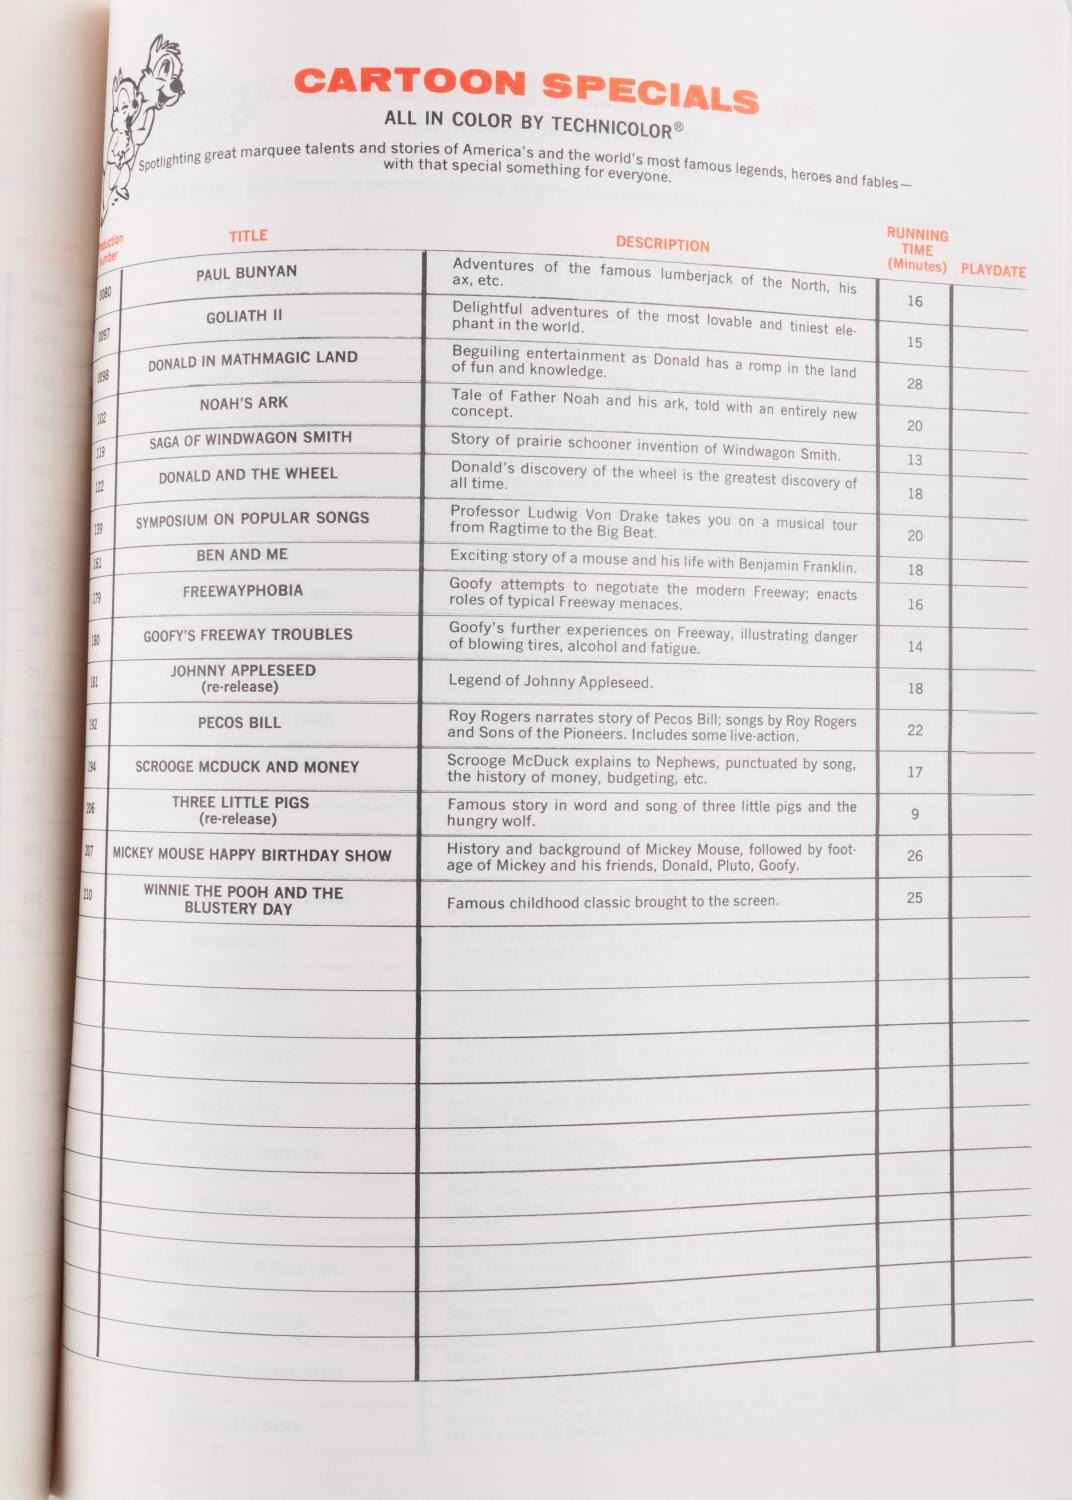 CARTOON SPECIALS
ALL IN COLOR BY TECHNICOLOR®
Spotlighting great marquee talents and stories of America's and the world's most famous legends, heroes and fables—
with that special something for everyone.
TITLE
DESCRIPTION
RUNNING
TIME
(Minutes)
PLAYDATE
number
0080
PAUL BUNYAN
Adventures of the famous lumberjack of the North, his
ax, etc.
16
0097
GOLIATH II
Delightful adventures of the most lovable and tiniest ele-
phant in the world.
15
0098
DONALD IN MATHMAGIC LAND
Beguiling entertainment as Donald has a romp in the land
of fun and knowledge.
28
102
NOAH'S ARK
Tale of Father Noah and his ark, told with an entirely new
concept.
20
119
SAGA OF WINDWAGON SMITH
Story of prairie schooner invention of Windwagon Smith.
13
122
DONALD AND THE WHEEL
Donald's discovery of the wheel is the greatest discovery of
all time.
18
139
SYMPOSIUM ON POPULAR SONGS
Professor Ludwig Von Drake takes you on a musical tour
from Ragtime to the Big Beat.
20
161
BEN AND ME
Exciting story of a mouse and his life with Benjamin Franklin.
18
179
FREEWAYPHOBIA
Goofy attempts to negotiate the modern Freeway; enacts
roles of typical Freeway menaces.
16
180
GOOFY'S FREEWAY TROUBLES
Goofy's further experiences on Freeway, illustrating danger
of blowing tires, alcohol and fatigue.
14
181
JOHNNY APPLESEED
(re-release)
Legend of Johnny Appleseed.
18
192
PECOS BILL
Roy Rogers narrates story of Pecos Bill; songs by Roy Rogers
and Sons of the Pioneers. Includes some live-action.
22
194
SCROOGE MCDUCK AND MONEY
Scrooge McDuck explains to Nephews, punctuated by song,
the history of money, budgeting, etc.
17
206
THREE LITTLE PIGS
(re-release)
Famous story in word and song of three little pigs and the
hungry wolf.
9
207
MICKEY MOUSE HAPPY BIRTHDAY SHOW
History and background of Mickey Mouse, followed by foot-
age of Mickey and his friends, Donald, Pluto, Goofy.
26
210
WINNIE THE POOH AND THE
BLUSTERY DAY
Famous childhood classic brought to the screen.
25